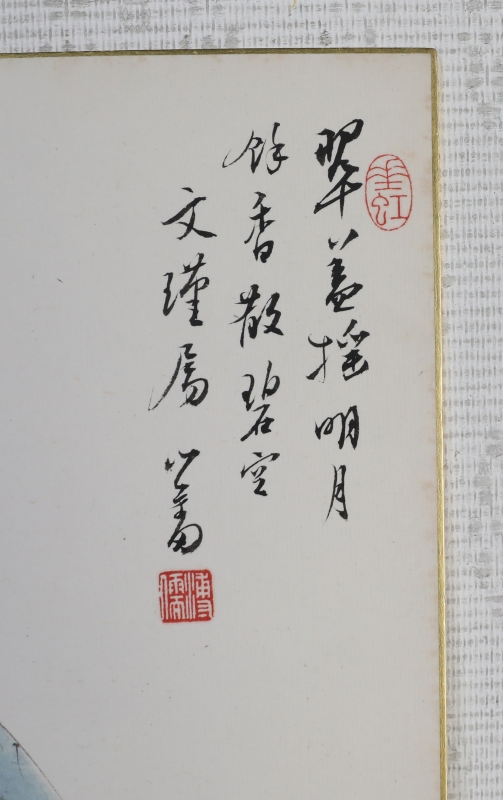 翠蓋搖明月
餘香散碧空
文瑾屬 心畬
溥儒